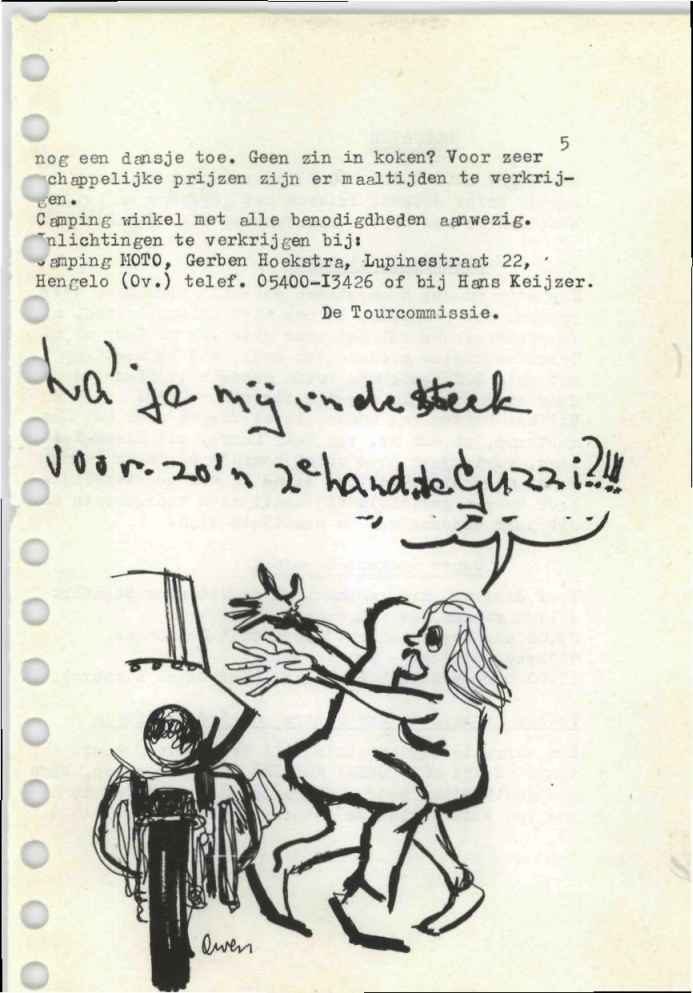 5
nog een dansje toe. Geen zin in koken? Voor zeer
schappelijke prijzen zijn er maaltijden te verkrij-
gen.
Camping winkel met alle benodigdheden aanwezig.
Inlichtingen te verkrijgen bij:
Camping MOTO, Gerben Hoekstra, Lupinestraat 22,
Hengelo (Ov.) telef. 05400-I3426 of bij Hans Keijzer.
De Tourcommissie.
La' je mij in de steek
voor zo'n 2e handse Guzzi?!!!
Qwen